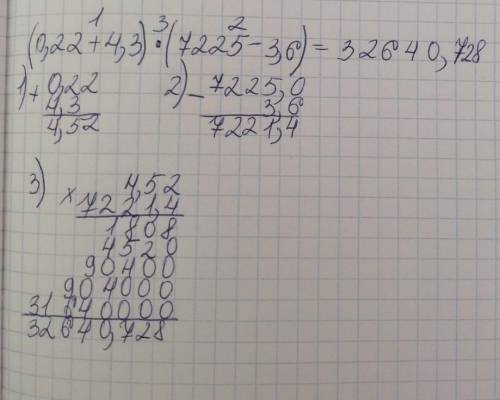 1 3 2
(0,22+4,3)•(7225-3,6)=32640,728
1) + 0,22 2) - 7225,0
4,3 3,6
4,52 7221,4
3) × 4,52
7221,4
1808
4520
90400
904000
31640000
32640,728